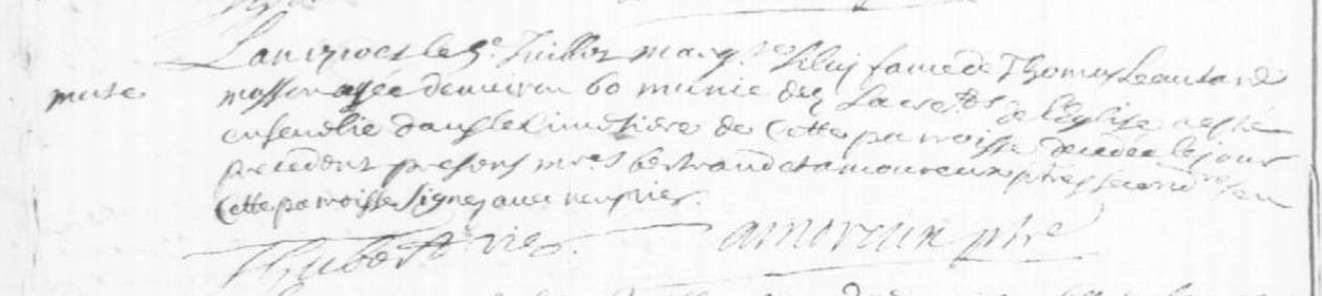 Lan 1706 et le 5e Juillet marg.te femme de Thomas Leautard
morte
masson agée denviron 60 munie des Sacremts de l'Eglise a esté
ensevelie dans le Cimetière de Cette paroisse decedée le jour
precedent presens mres bertrand et amoureux ptres secondres en
Cette paroisse signez avec nous vic.
Vic.
amoreux ptre